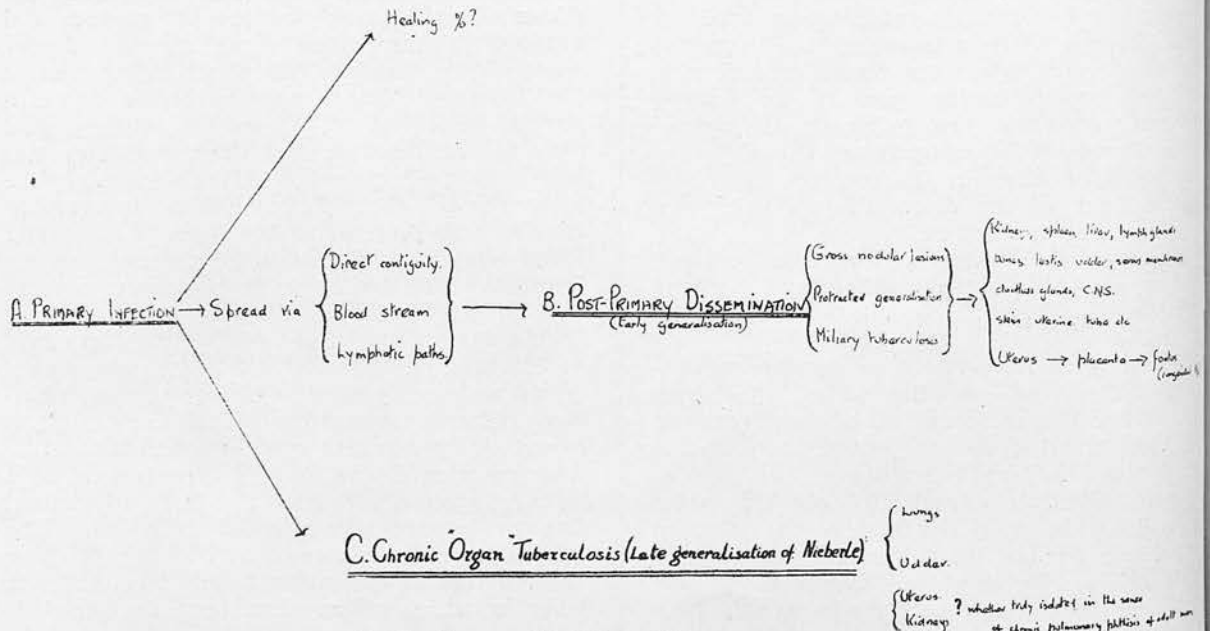 Healing %?
A. PRIMARY INFECTION → Spread via
Direct contiguity.
Blood stream
Lymphatic paths.
B. POST-PRIMARY DISSEMINATION
(Early generalisation)
Gross nodular lesions
Protracted generalisation
Miliary tuberculosis
Kidney, spleen, liver, lymph glands
udder,
glands, C.N.S.
skin uterine tube etc
Uterus → placenta →
C. Chronic "Organ" Tuberculosis (Late generalisation of Nieberle)
Lungs
Udder.
Uterus
Kidneys
? whether truly isolated in the sense
of chronic pulmonary phthisis of adult man